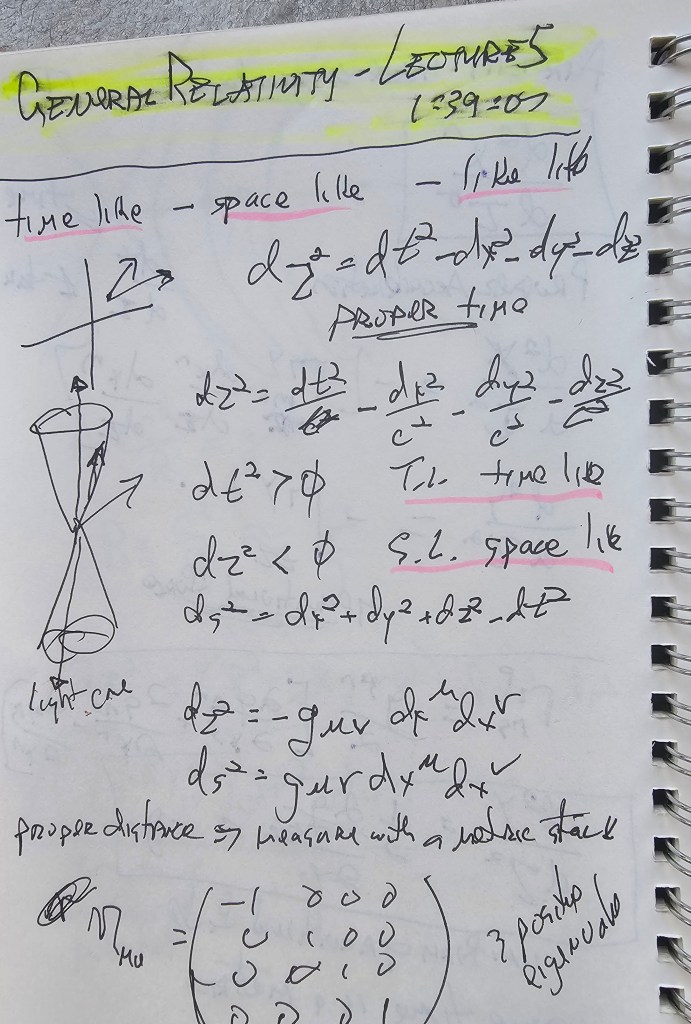 GENERAL RELATIVITY - LECTURE 5
1:39:07
time like - space like - like
dτ² = dt² - dx² - dy² - dz²
PROPER time
dτ² = dt² - dx²/c² - dy²/c² - dz²/c²
dt² > 0 T.L. time like
dτ² < 0 S.L. space like
ds² = dx² + dy² + dz² - dt²
light cone
dτ² = -gμν dx^μ dx^ν
ds² = gμν dx^μ dx^ν
proper distance => measure with a metric stick
ημν = ( -1 0 0 0
0 1 0 0
0 0 1 0
0 0 0 1 )
3 positive
eigenvals